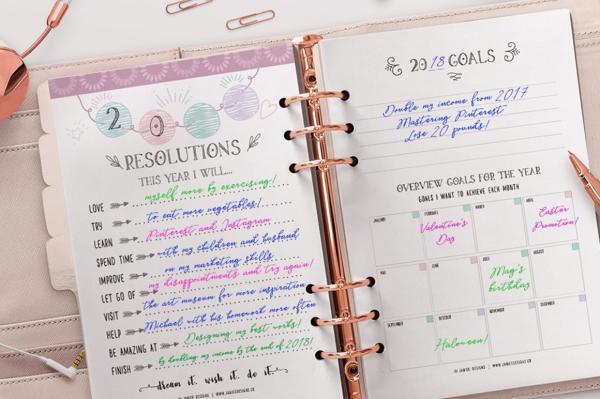 2 0
RESOLUTIONS
THIS YEAR I WILL...
LOVE myself more by exercising!
TRY to eat more vegetables!
LEARN Pinterest and Instagram
SPEND TIME with my children and husband
IMPROVE on my marketing skills
LET GO OF my disappointments and try again!
VISIT the art museum for more inspiration
HELP Michael with his homework more often
BE AMAZING AT Designing my best works!
FINISH by doubling my income by the end of 2018!
dream it. wish it. do it.
2018 GOALS
Double my income from 2017
Mastering Pinterest
Lose 20 pounds!
OVERVIEW GOALS FOR THE YEAR
GOALS I WANT TO ACHIEVE EACH MONTH
JANUARY FEBRUARY MARCH APRIL
Valentine's Day
Easter Promotion!
MAY JUNE JULY AUGUST
Mag's birthday
SEPTEMBER OCTOBER NOVEMBER DECEMBER
Haloween!